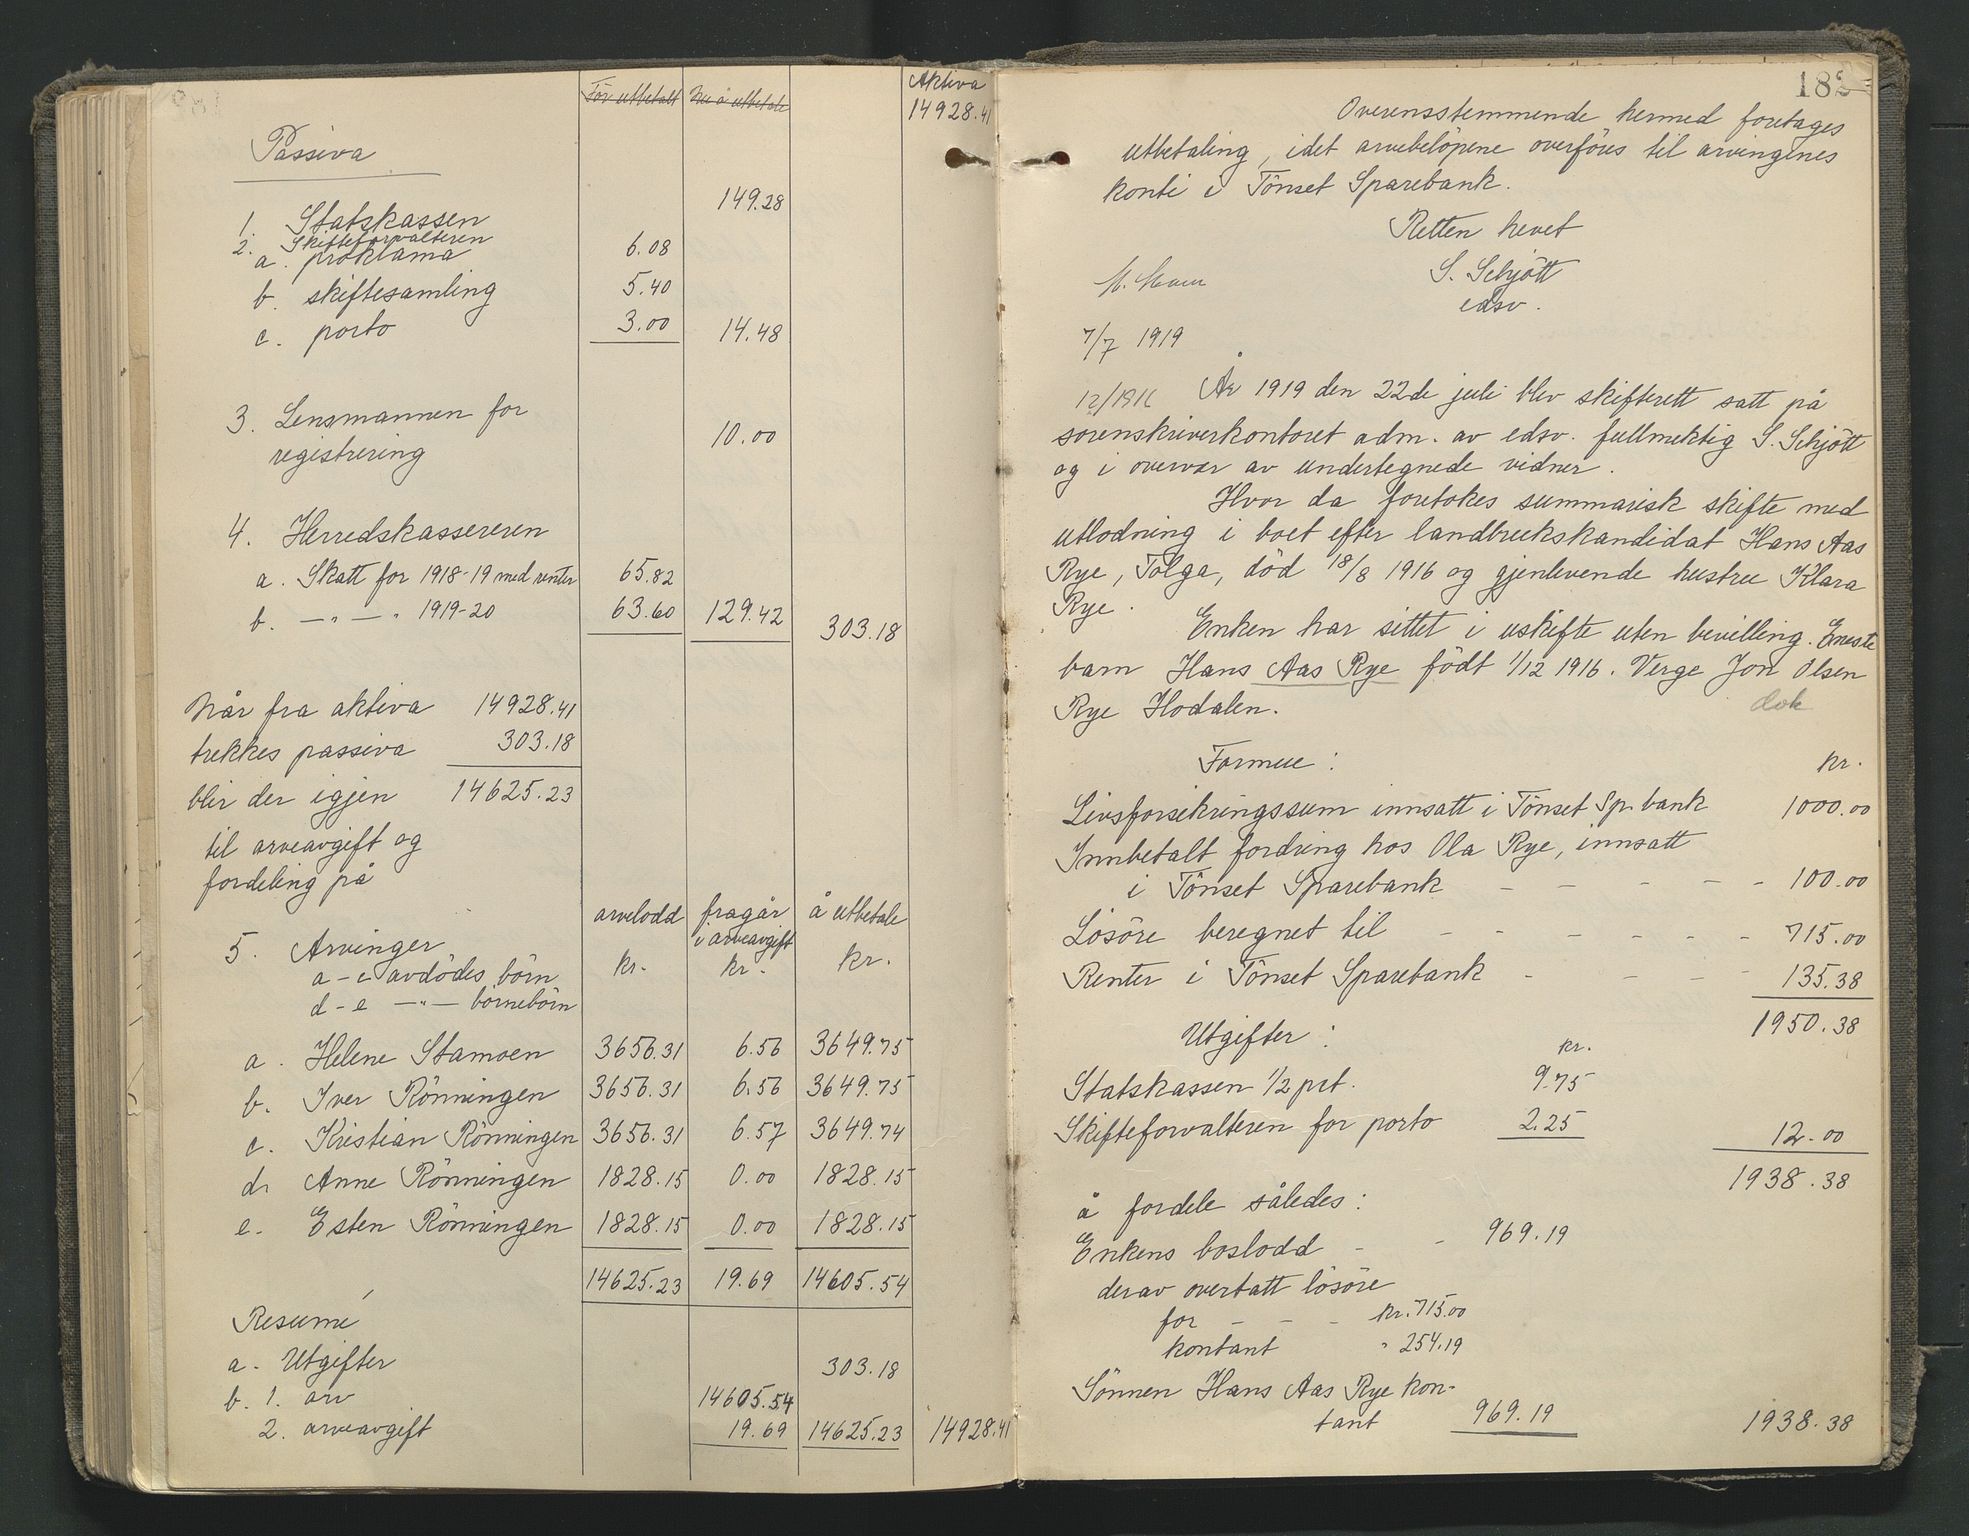 För utbetalt Nu å utbetale Aktiva
14928.41
Passiva
1. Statskassen 149.28
2. Skifteforvalteren
a. proklama 6.08
b. skiftesamling 5.40
c. porto 3.00 14.48
3. Lensmannen for
registrering 10.00
4. Herredskassereren
a. Skatt for 1918-19 med renter 65.82
b. —"—" 1919-20 63.60 129.42 303.18
Når fra aktiva 14928.41
trekkes passiva 303.18
blir der igjen 14625.23
til arveavgift og
fordeling på
arvelodd fragår i arveavgift å utbetale
5. Arvinger
a-c avdödes börn kr. kr. kr.
d-e —"— börnebörn
a. Helene Stamoen 3656.31 6.56 3649.75
b. Iver Rönningen 3656.31 6.56 3649.75
c. Kristian Rönningen 3656.31 6.57 3649.74
d. Anne Rönningen 1828.15 0.00 1828.15
e. Esten Rönningen 1828.15 0.00 1828.15
14625.23 19.69 14605.54
Resumé
a. Utgifter 303.18
b. 1. arv 14605.54
2. arveavgift 19.69 14625.23 14928.41
182
Overensstemmende hermed foretages
utbetaling, idet arvebelöpene overföres til arvingenes
konti i Tönset Sparebank.
Retten hevet
S. Schjött
edsv.
7/7 1919
12/1916 År 1919 den 22de juli blev skifterett satt på
sorenskriverkontoret adm. av edsv. fullmektig S. Schjött
og i overvær av undertegnede vidner.
Hvor da foretokes summarisk skifte med
utlodning i boet efter landbrukskandidat Hans Aas
Rye, Tolga, död 18/8 1916 og gjenlevende hustru Klara
Rye.
Enken har sittet i uskifte uten bevilling. Eneste
barn Hans Aas Rye födt 1/12 1916. Verge Jon Olsen
Rye Hodalen. dok
Formue: kr.
Livsforsikringssum innsatt i Tönset Sp.bank 1000.00
Innbetalt fordring hos Ola Rye, innsatt
i Tönset Sparebank - - - - - 100.00
Lösöre beregnet til - - - - - - 715.00
Renter i Tönset Sparebank - - - - 135.38
1950.38
Utgifter: kr.
Statskassen 1/2 pct. 9.75
Skifteforvalteren for porto 2.25 12.00
1938.38
å fordele således:
Enkens boslodd - - 969.19
derav overtatt lösöre
for - - - kr. 715.00
kontant " 254.19
Sönnen Hans Aas Rye kon-
tant 969.19 1938.38